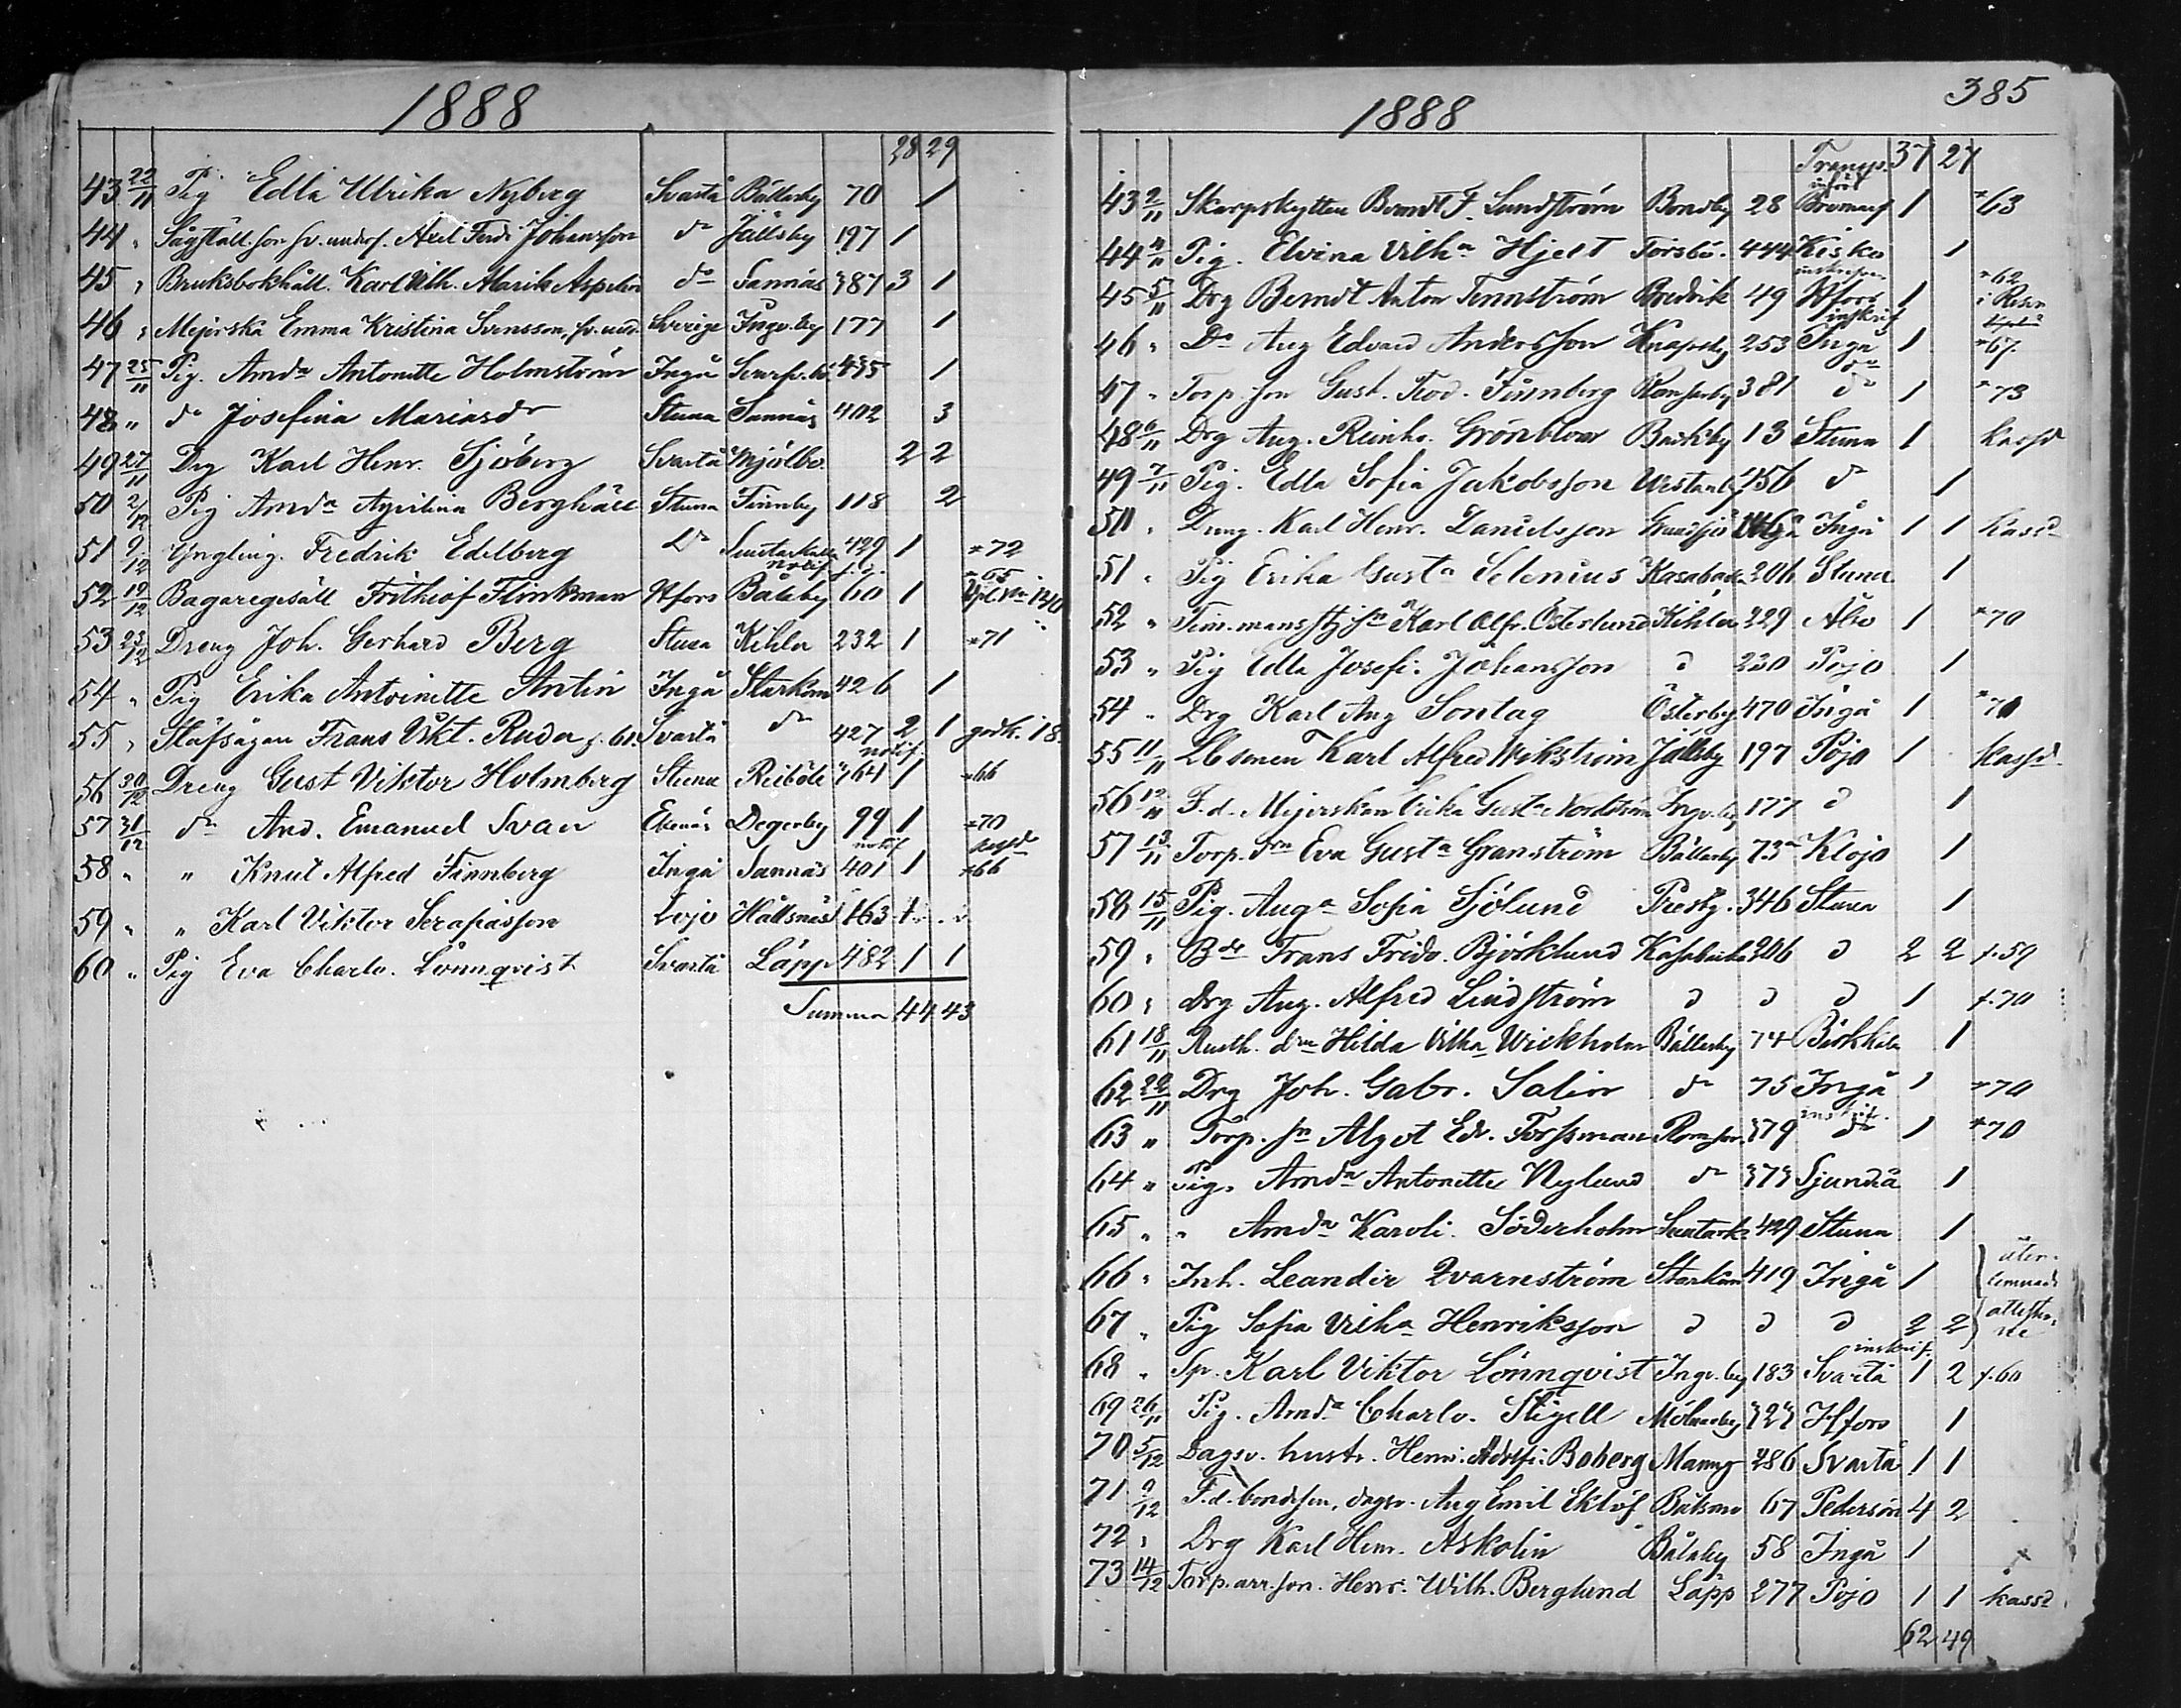 1888
28 29
43 22/11 Pig Edla Ulrika Nyberg Svartå Bällarby 70 1
44 " Sågställ. son sv. unders. Axel Ferd. Johansson do Jällsby 197 1
45 " Bruksbokhåll. Karl Vilh. Alarik Aspelin do Sannäs 387 3 1
46 " Mejerska Emma Kristina Svensson, sv. und. Sverige Ingv. by 177 1
47 25/11 Pig. Amda Antonette Holmström Ingå 435 1
48 " do Josefina Mariasdr Stuna Sannäs 402 3
49 27/11 Drg Karl Henr. Sjöberg Svartå Mjölbo. 2 2
50 2/12 Pig Amda Aqvilina Berghäll Stuna Finnby 118 2
51 9/12 Yngling. Fredrik Edelberg Do 429 1 *72
notif
52 19/12 Bagaregesäll Frithiof Flinkman Hfors Båleby 60 1 *65
53 23/12 Dreng Joh. Gerhard Berg Stuna Kihla 232 1 *71
54 " Pig Erika Antoinette Antin Ingå Starkom 426 1
55 " Stäfsågare Frans Vikt. Ruda f. 61. Svartå do 427 2 1 godk. 18
notif.
56 30/12 Dreng Gust Viktor Holmberg Stuna Reiböle 364 1 *66
57 31/12 do And. Emanuel Svan Ekenäs Degerby 99 1 *70
notif
58 " " Knut Alfred Finnberg Ingå Sannäs 401 1 *66
59 " " Karl Viktor Serafiasson Lojo Hållsnäs 163 1
60 " Pig Eva Charlo. Lönnqvist Svartå Läpp 482 1 1
Summa 44 43
385
1888
Transp. 37 27
införd
43 2/11 Skarpskytten Berndt F. Sundström Bondby 28 Bromarf 1 *63
44 4/11 Pig. Elvina Vilha Hjelt Torsbö. 444 Kisko 1
45 5/11 Drg Berndt Anton Tennström Bredvik 49 Hfors 1 *62 i Reserv
inskrif
46 " Do Aug Edvard Andersson Knapsby 253 Ingå 1 *67.
47 " Torp. son Gust. Teod. Finnberg Ramsarby 381 do 1 *73
48 6/11 Drg Aug. Reinho. Grönblom Backby 13 Stuna 1 kassd
49 7/11 Pig. Edla Sofia Jakobsson Westanby 456 do 1
50 " Dreng. Karl Henr. Danielsson Ingå 1 1 kassd
51 " Pig Erika Gusta Selenius Kasaback 206 Stuna 1
52 " Timmans stjsn Karl Alfr. Österlund Kihla 229 Åbo 1 *70
53 " Pig Edla Josefi. Johansson d 230 Pojo 1
54 " Drg Karl Aug Sontag Österby 470 Ingå 1 *70
55 11/11 Karl Alfred Wikström Jällsby 197 Pojo 1 kassd.
56 12/11 F. d. Mejerskan Erika Gusta Nordström Ingv. by 177 d 1
57 13/11 Torp. drn Eva Gusta Granström Bällarby 73a Klojo 1
58 15/11 Pig. Auga Sofia Sjölund Prestg. 346 Stuna 1
59 " Frans Frido. Björklund Kasabacka 206 d 2 2 f. 59
60 " Drg Aug. Alfred Lindström d d d 1 f. 70
61 18/11 Rusth. drn Hilda Vilha Wickholm Bällarby 74 1
62 22/11 Drg Joh. Gabr. Salin do 75 Ingå 1 *70
inskrif.
63 " Torp. sn Algot Edv. Forssman Ramsar. 379 do 1 *70
64 " Pig. Amda Antonette Nylund do 373 Sjundeå 1
65 " " Amda Karoli. Söderholm 429 Stuna 1
66 " Inh. Leander Qvarnström Starkom 419 Ingå 1 åter-
lemnade
67 " Pig Sofia Vilha Henriksson d d d 2 2 attester-
ne
inskrif.
68 " Sp. Karl Viktor Lönnqvist Ingv. by 183 Svartå 1 2 f. 60
69 26/11 Pig. Amda Charlo. Stigell Mölnarby 323 Hfors 1
70 5/12 Dagsv. hustr. Henr. Adolfi. Boberg Manng 286 Svartå 1 1
71 9/12 F. d. bondeson, dagsv. Aug Emil Eklöf Båtsmo 67 Pedersöre 4 2
72 " Drg Karl Henr. Askolin Båleby 58 Ingå 1
73 14/12 Torp. arr. son. Henr. Wilh. Berglund Läpp 277 Pojo 1 1 kassd
62 49